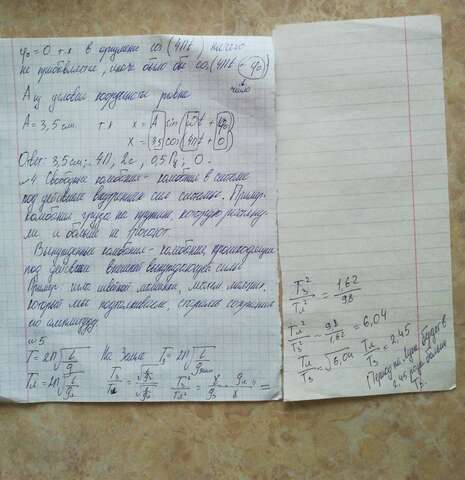 φ₀ = 0 т.к в аргументе cos (4πt) ничего
не прибавляется, иначе было бы cos(4πt + φ₀)
число
A из условия подчеркнуто равна
A = 3,5 см. т.к x = A sin(ωt + φ₀)
x = 3,5 cos(4πt + 0)
Ответ: 3,5 см; 4π, 2с, 0,5 Гц, 0.
№4 Свободные колебания - колебания в системе
под действием внутренних сил системы. Пример:
колебания груза на пружине, которую растяну-
ли и больше не трогают.
Вынужденные колебания - колебания, происходящие
под действием внешней вынуждающей силы
Пример игла швейной машинки, маятник,
который мы подталкиваем, стараясь сохранить
его амплитуду
№5
T = 2π√(l/g) На Земле Tз = 2π√(l/g)
Tл = 2π√(l/gл)
Tз²/Tл² = 1,62/9,8
Tл²/Tз² = 9,8/1,62 = 6,04
Tл/Tз = √6,04 Tл/Tз = 2.45
Период на Луне будет в
2.45 раза больше